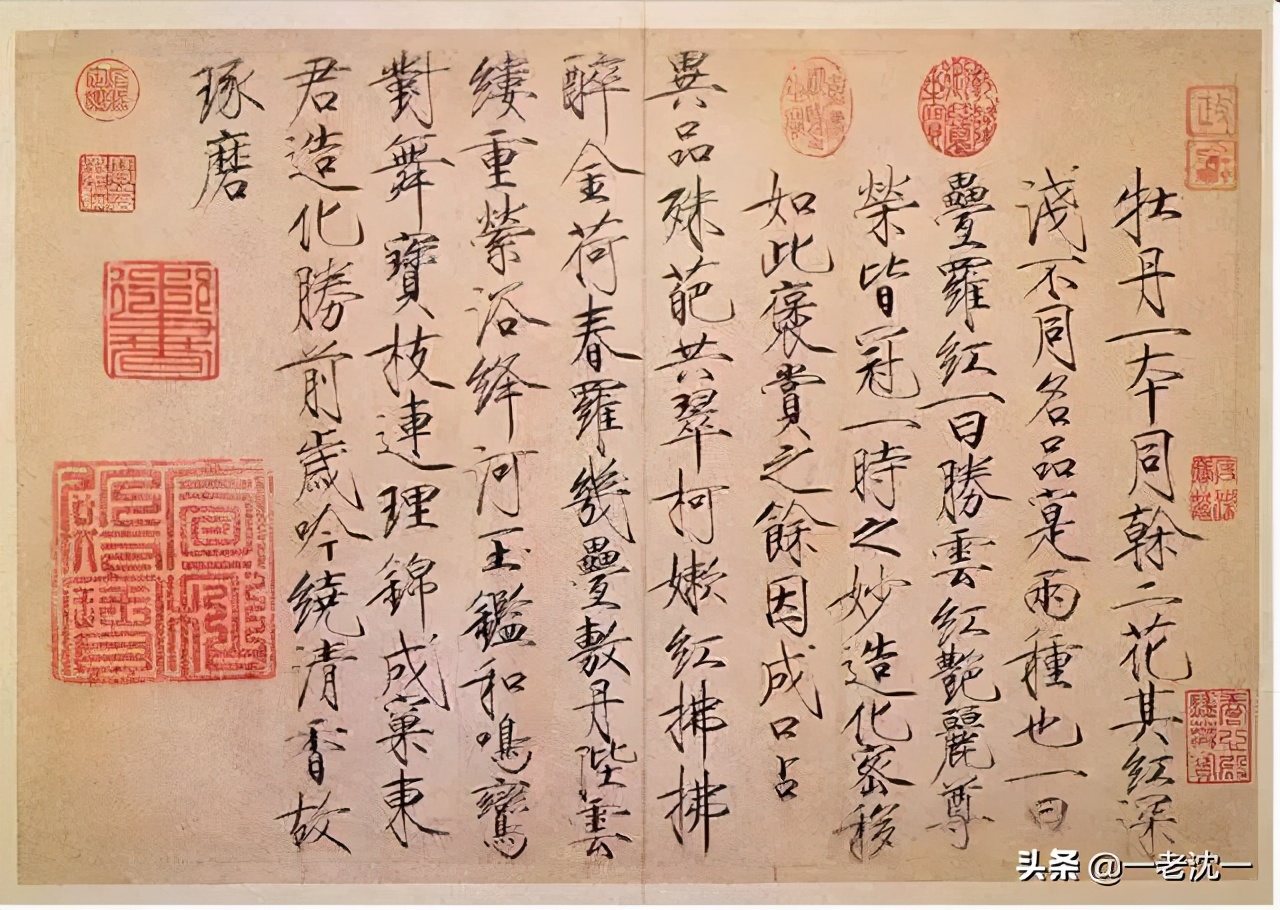 牡丹一本同榦二花其紅深
淺不同名品寔兩種也一曰
疊羅紅一曰勝雲紅艷麗尊
榮皆冠一時之妙造化密移
如此褒賞之餘因成口占
異品殊葩共翠柯嫩紅拂拂
醉金荷春羅幾疊敷丹陛雲
縷重縈浴絳河玉鑑和鳴鸞
對舞寶枝連理錦成窠東
君造化勝前歲吟繞清香故
琢磨
頭条 @一老沈一